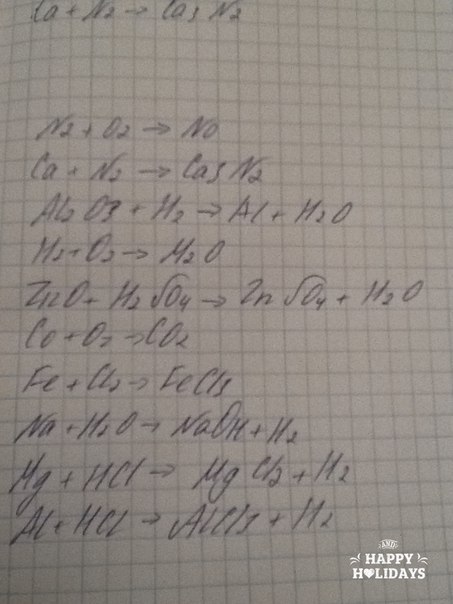 Ca + N2 → Ca3N2
N2 + O2 → NO
Ca + N2 → Ca3N2
Al2O3 + H2 → Al + H2O
H2 + O2 → H2O
ZnO + H2SO4 → ZnSO4 + H2O
CO + O2 → CO2
Fe + Cl2 → FeCl3
Na + H2O → NaOH + H2
Mg + HCl → MgCl2 + H2
Al + HCl → AlCl3 + H2
AND
HAPPY
HOLIDAYS